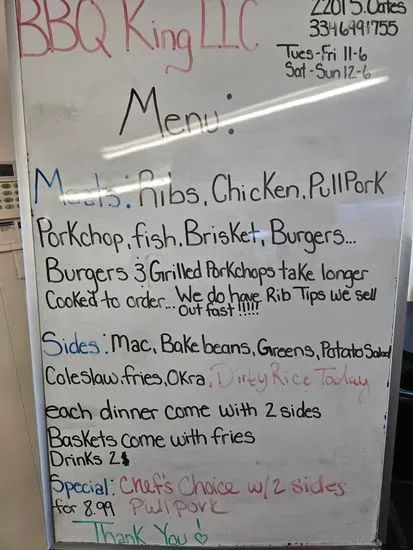 BBQ King LLC
2201 S. Oates
3346991755
Tues-Fri 11-6
Sat-Sun 12-6
Menu:
Meats: Ribs, Chicken, PullPork
Porkchop, fish, Brisket, Burgers...
Burgers & Grilled Porkchops take longer
Cooked to order... We do have Rib Tips we sell
out fast !!!!!
Sides: Mac, Bake beans, Greens, Potato Salad
Coleslaw, fries, Okra, Dirty Rice Today
each dinner come with 2 sides
Baskets come with fries
Drinks 2$
Special: Chef's Choice w/2 sides
for 8.99 Pull pork
Thank You!